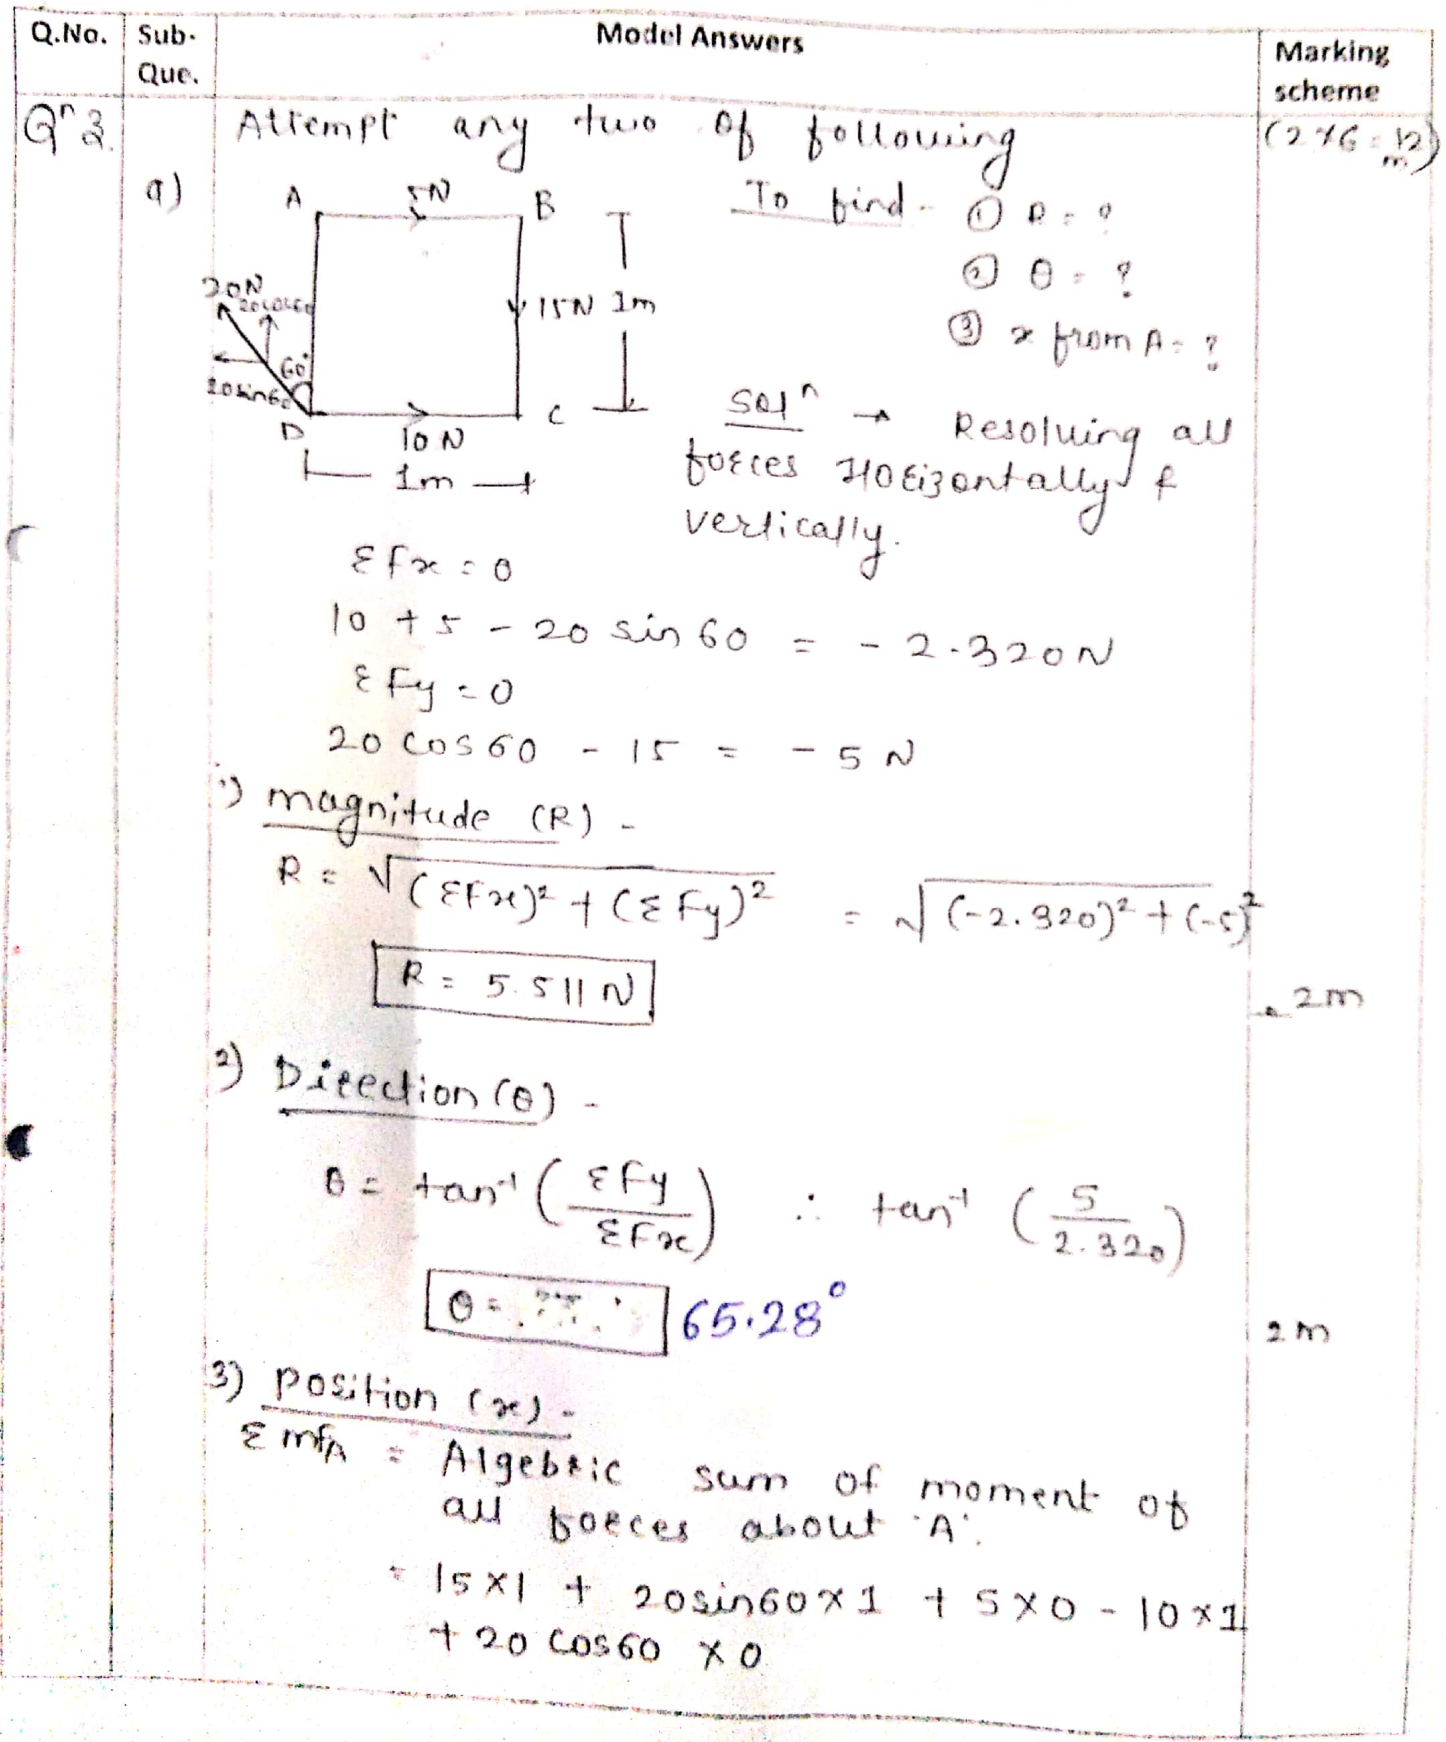 Q.No. Sub-Que. Model Answers Marking scheme
Qn 3. Attempt any two of following (2 x 6 = 12 m)
a)
A 5N B
20N
20cos60
60°
20sin60
15N 1m
D 10N C
1m
To find - ① R = ?
② θ = ?
③ x from A = ?
Soln → Resolving all
forces Horizontally &
vertically.
ΣFx = 0
10 + 5 - 20 sin 60 = - 2.320N
ΣFy = 0
20 cos 60 - 15 = - 5 N
1) magnitude (R) -
R = √(ΣFx)² + (ΣFy)² = √(-2.320)² + (-5)²
R = 5.511 N
2m
2) Direction (θ) -
θ = tan⁻¹ (ΣFy / ΣFx) ∴ tan⁻¹ (5 / 2.320)
θ = 65.28°
2m
3) position (x) -
ΣmfA = Algebric sum of moment of
all forces about 'A'.
= 15x1 + 20sin60x1 + 5x0 - 10x1
+ 20 cos60 x 0